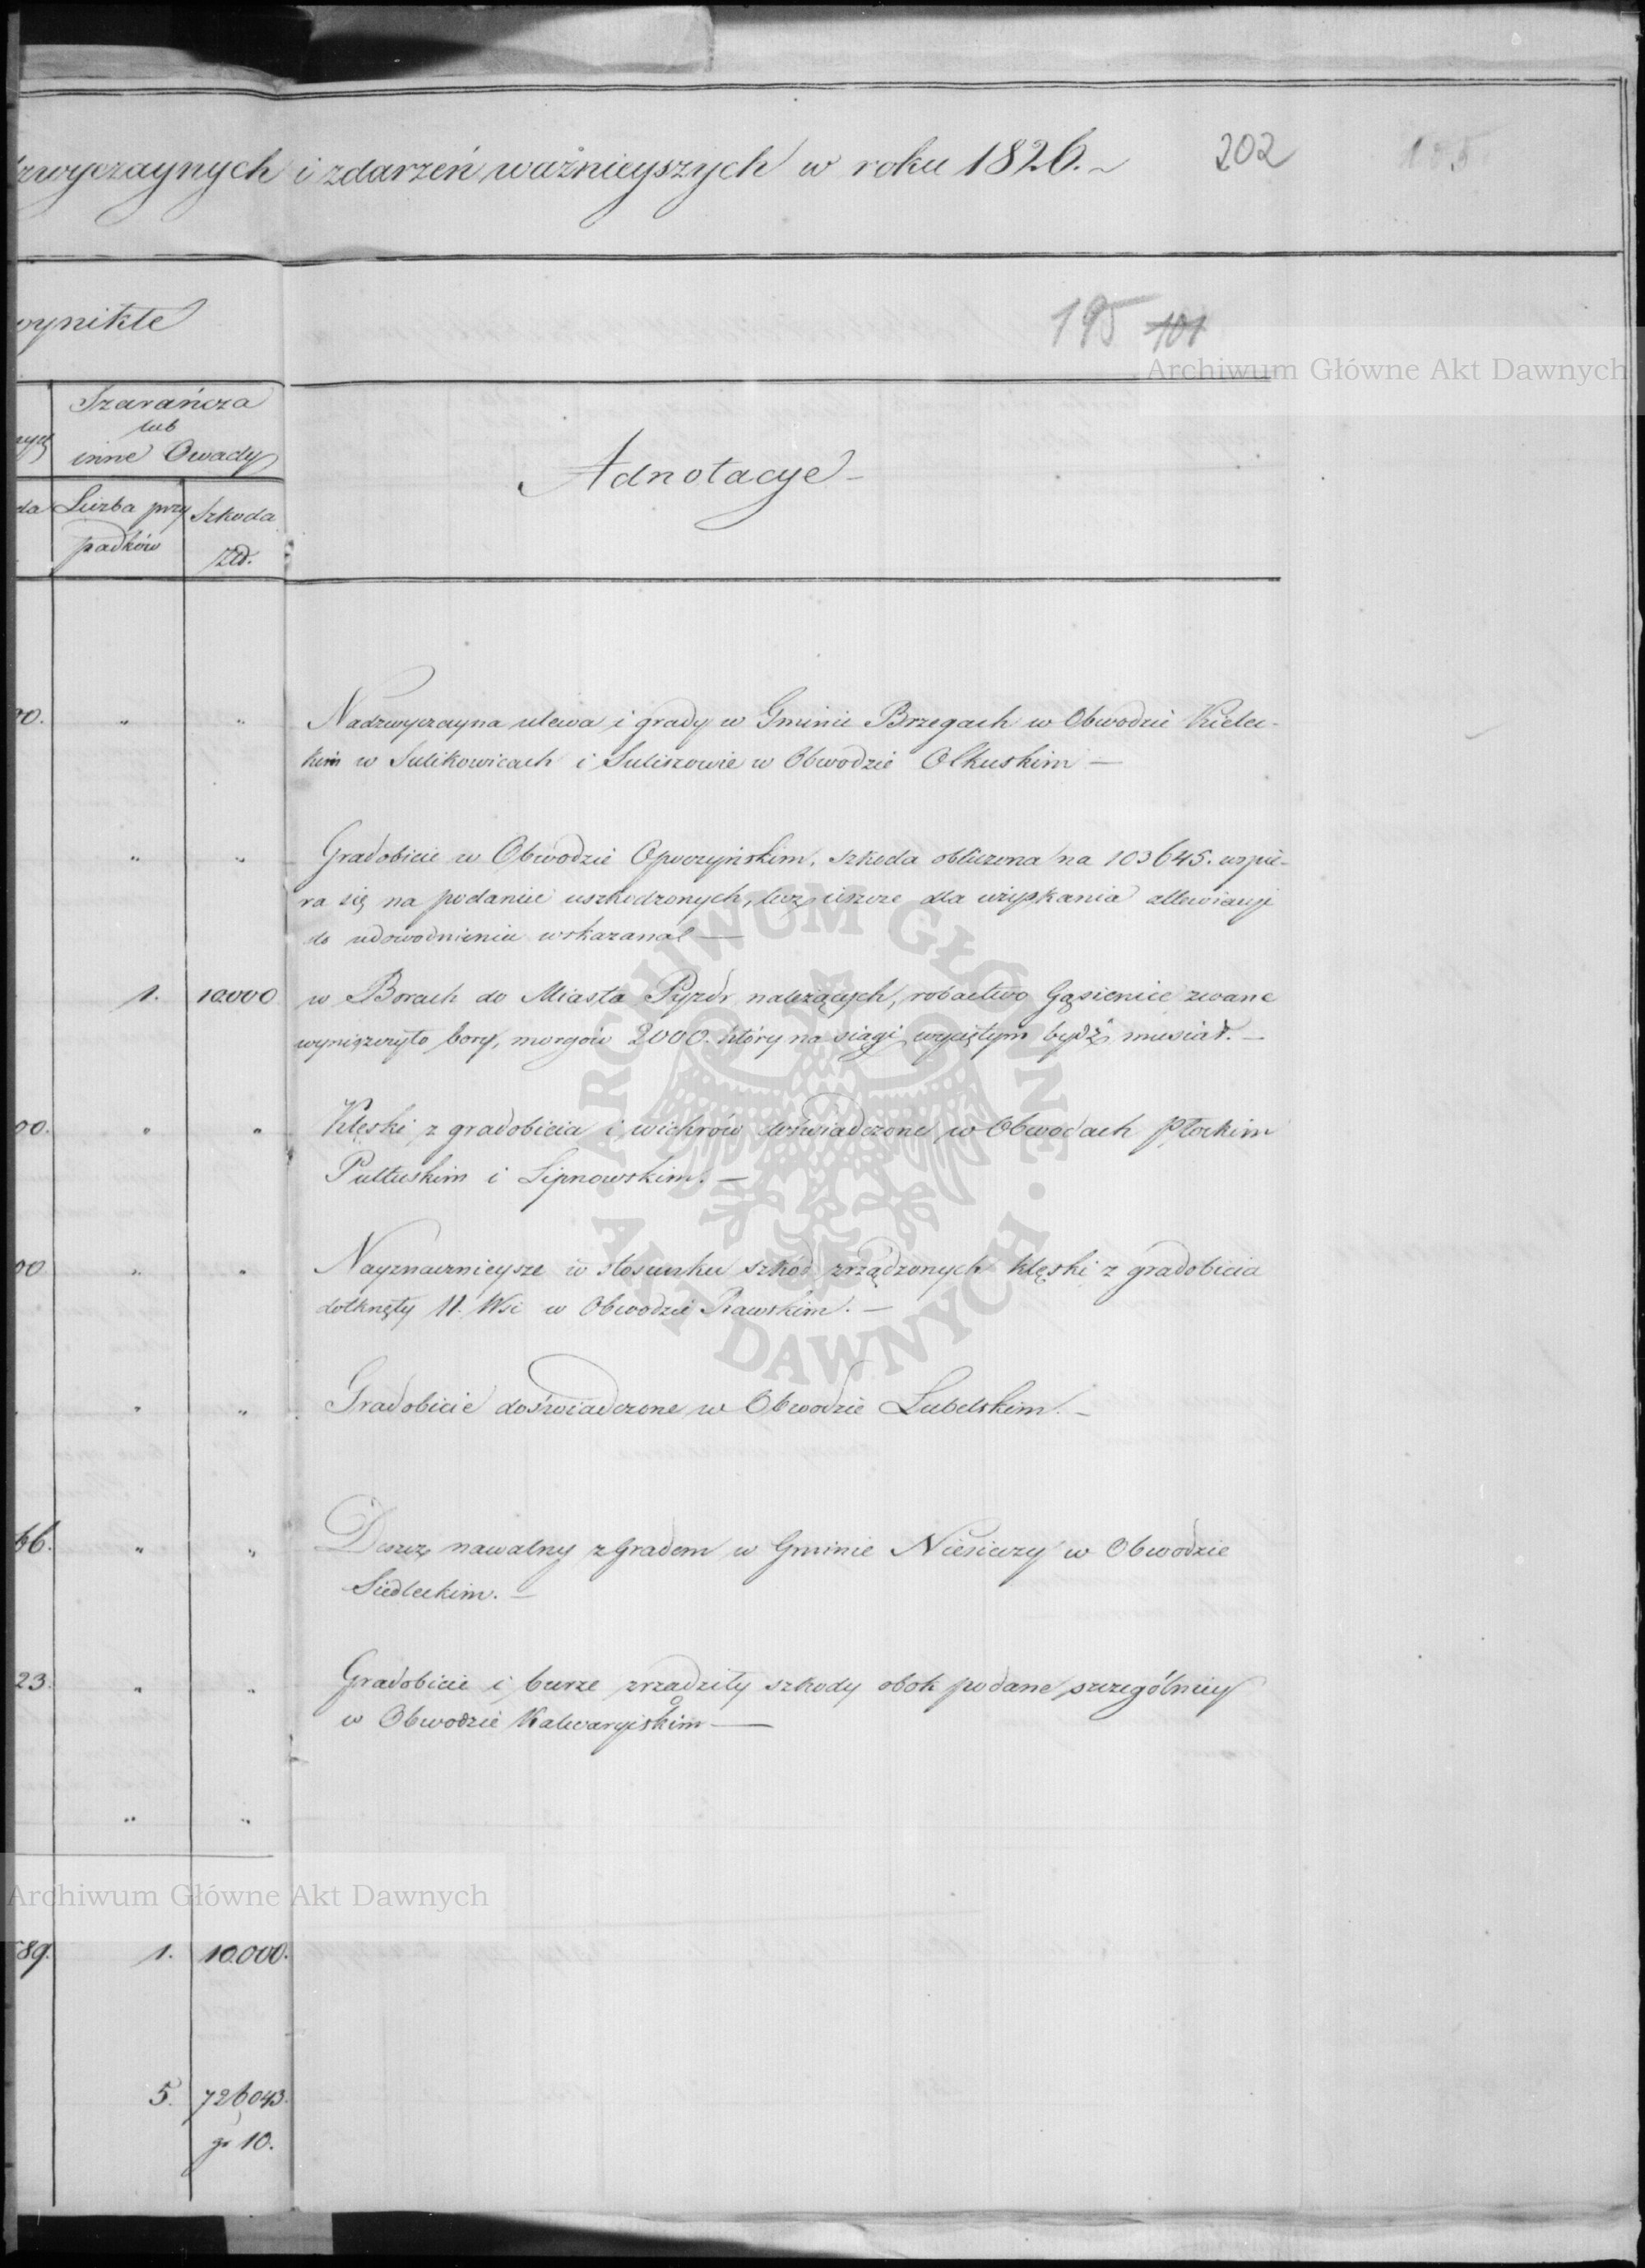 zwyczaynych i zdarzeń ważnieyszych w roku 1826.
202
105
wynikłe
195 101
Archiwum Główne Akt Dawnych
Szarańcza
lub
inne Owady
Adnotacye
da Liczba przy Szkoda
padków Złd.
00. " " Nadzwyczayna ulewa i grady w Gminie Brzegach w Obwodzie Kielec-
kim w Sulikowicach i Suliszowie w Obwodzie Olkuskim —
" " Gradobicie w Obwodzie Opoczyńskim, szkoda obliczona na 103645. wspie-
ra się na podaniu uszkodzonych, lecz ieszcze dla uzyskania allewiacyi
do udowodnienia wskazana —
1. 10.000 w Borach do Miasta Pyzdr należących, robactwo Gąsienice zwane
wyniszczyło bory, morgów 2000. który na siągi wyciętym bydź musiał. —
00. " " Klęski z gradobicia i wichrów doświadczone w Obwodach Płockim
Pułtuskim i Lipnowskim. —
00 " " Nayznacznieysze w stosunku szkód zrządzonych klęski z gradobicia
dotknęły 11. Wsi w Obwodzie Rawskim. —
" " Gradobicie doświadczone w Obwodzie Lubelskim. —
66. " " Deszcz nawalny z gradem w Gminie w Obwodzie
Siedleckim. —
23. " " Gradobicie i burze zrządziły szkody obok podane szczególniey
w Obwodzie Kalwaryiskim —
" "
Archiwum Główne Akt Dawnych
89. 1. 10.000.
5. 726043.
gr 10.
ARCHIWUM GŁÓWNE · AKT DAWNYCH ·